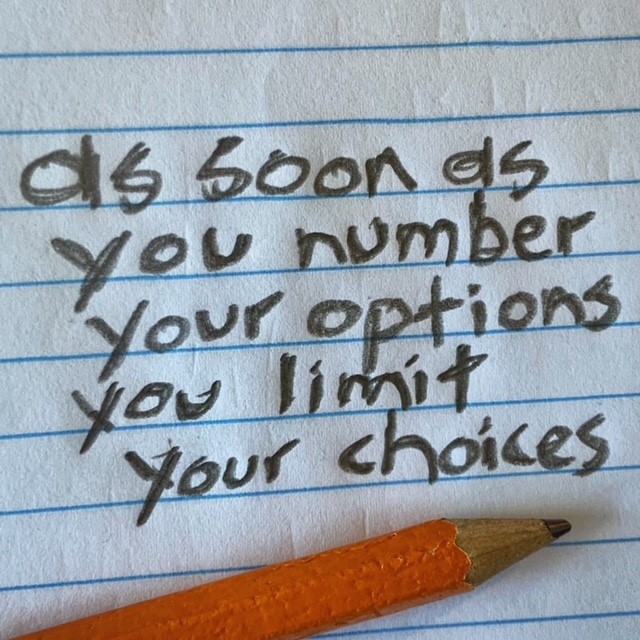 as soon as
you number
your options
you limit
your choices